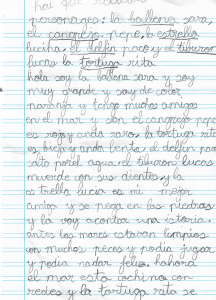 hai que realizar
personages: la ballena sara,
el cangrejo pepe, la estrella
lucina, el delfin paco y el tiburon
lucas la tortuga rita
hola soy la ballena sara y soy
muy grande y soy de color
naranja y tengo muchos amigos
en el mar y son el cangrejo pepe
es rojo y anda raro, la tortuga rita
es bieja y anda lenta, el delfin paco
salta por el agua, el tiburon lucas
muerde con sus dientes, y la
estrella lucia es mi mejor
amiga y se pega en las piedras
y la voy acontar una istoria.
antes los mares estavan limpios
con muchos peces y podia jugar
y podia nadar feliz, hahora
el mar esta cochino con
redes y la tortuga rita se